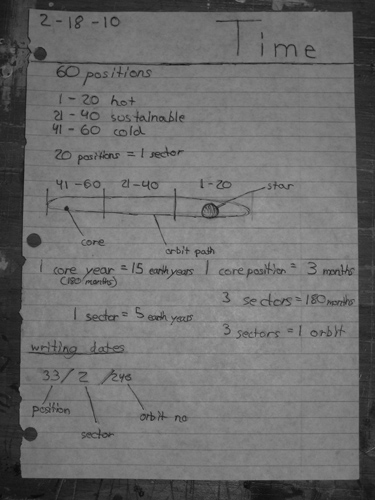 2-18-10
Time
60 positions
1-20 hot
21-40 sustainable
41-60 cold
20 positions = 1 sector
41-60 21-40 1-20
star
core
orbit path
1 core year = 15 earth years
(180 months)
1 core position = 3 months
3 sectors = 180 months
1 sector = 5 earth years
3 sectors = 1 orbit
writing dates
33/2/246
position
orbit no
sector